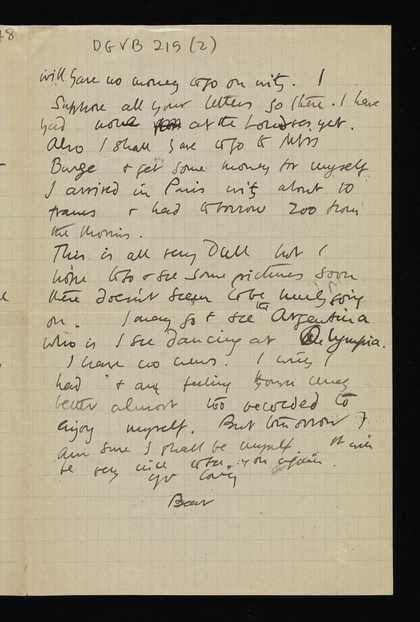 DGVB 219 (2)
will have no money to go on with. I
Suppose all your letters so there. I have
had none at the Londres yet.
Also I shall have to go to Miss
Burge + get some money for myself
I arrived in Paris with about 10
francs + had to borrow 200 from
the
This is all very Dull but I
hope to go + see some pictures soon
there doesn't seem to be much going
on. I may go + see the Argentina
who is I see dancing at Olympia.
I have no news. I
had + any feeling
better almost too to
enjoy myself. But tomorrow I
am sure I shall be myself it will
be very nice to see you again
yr loving
Bear